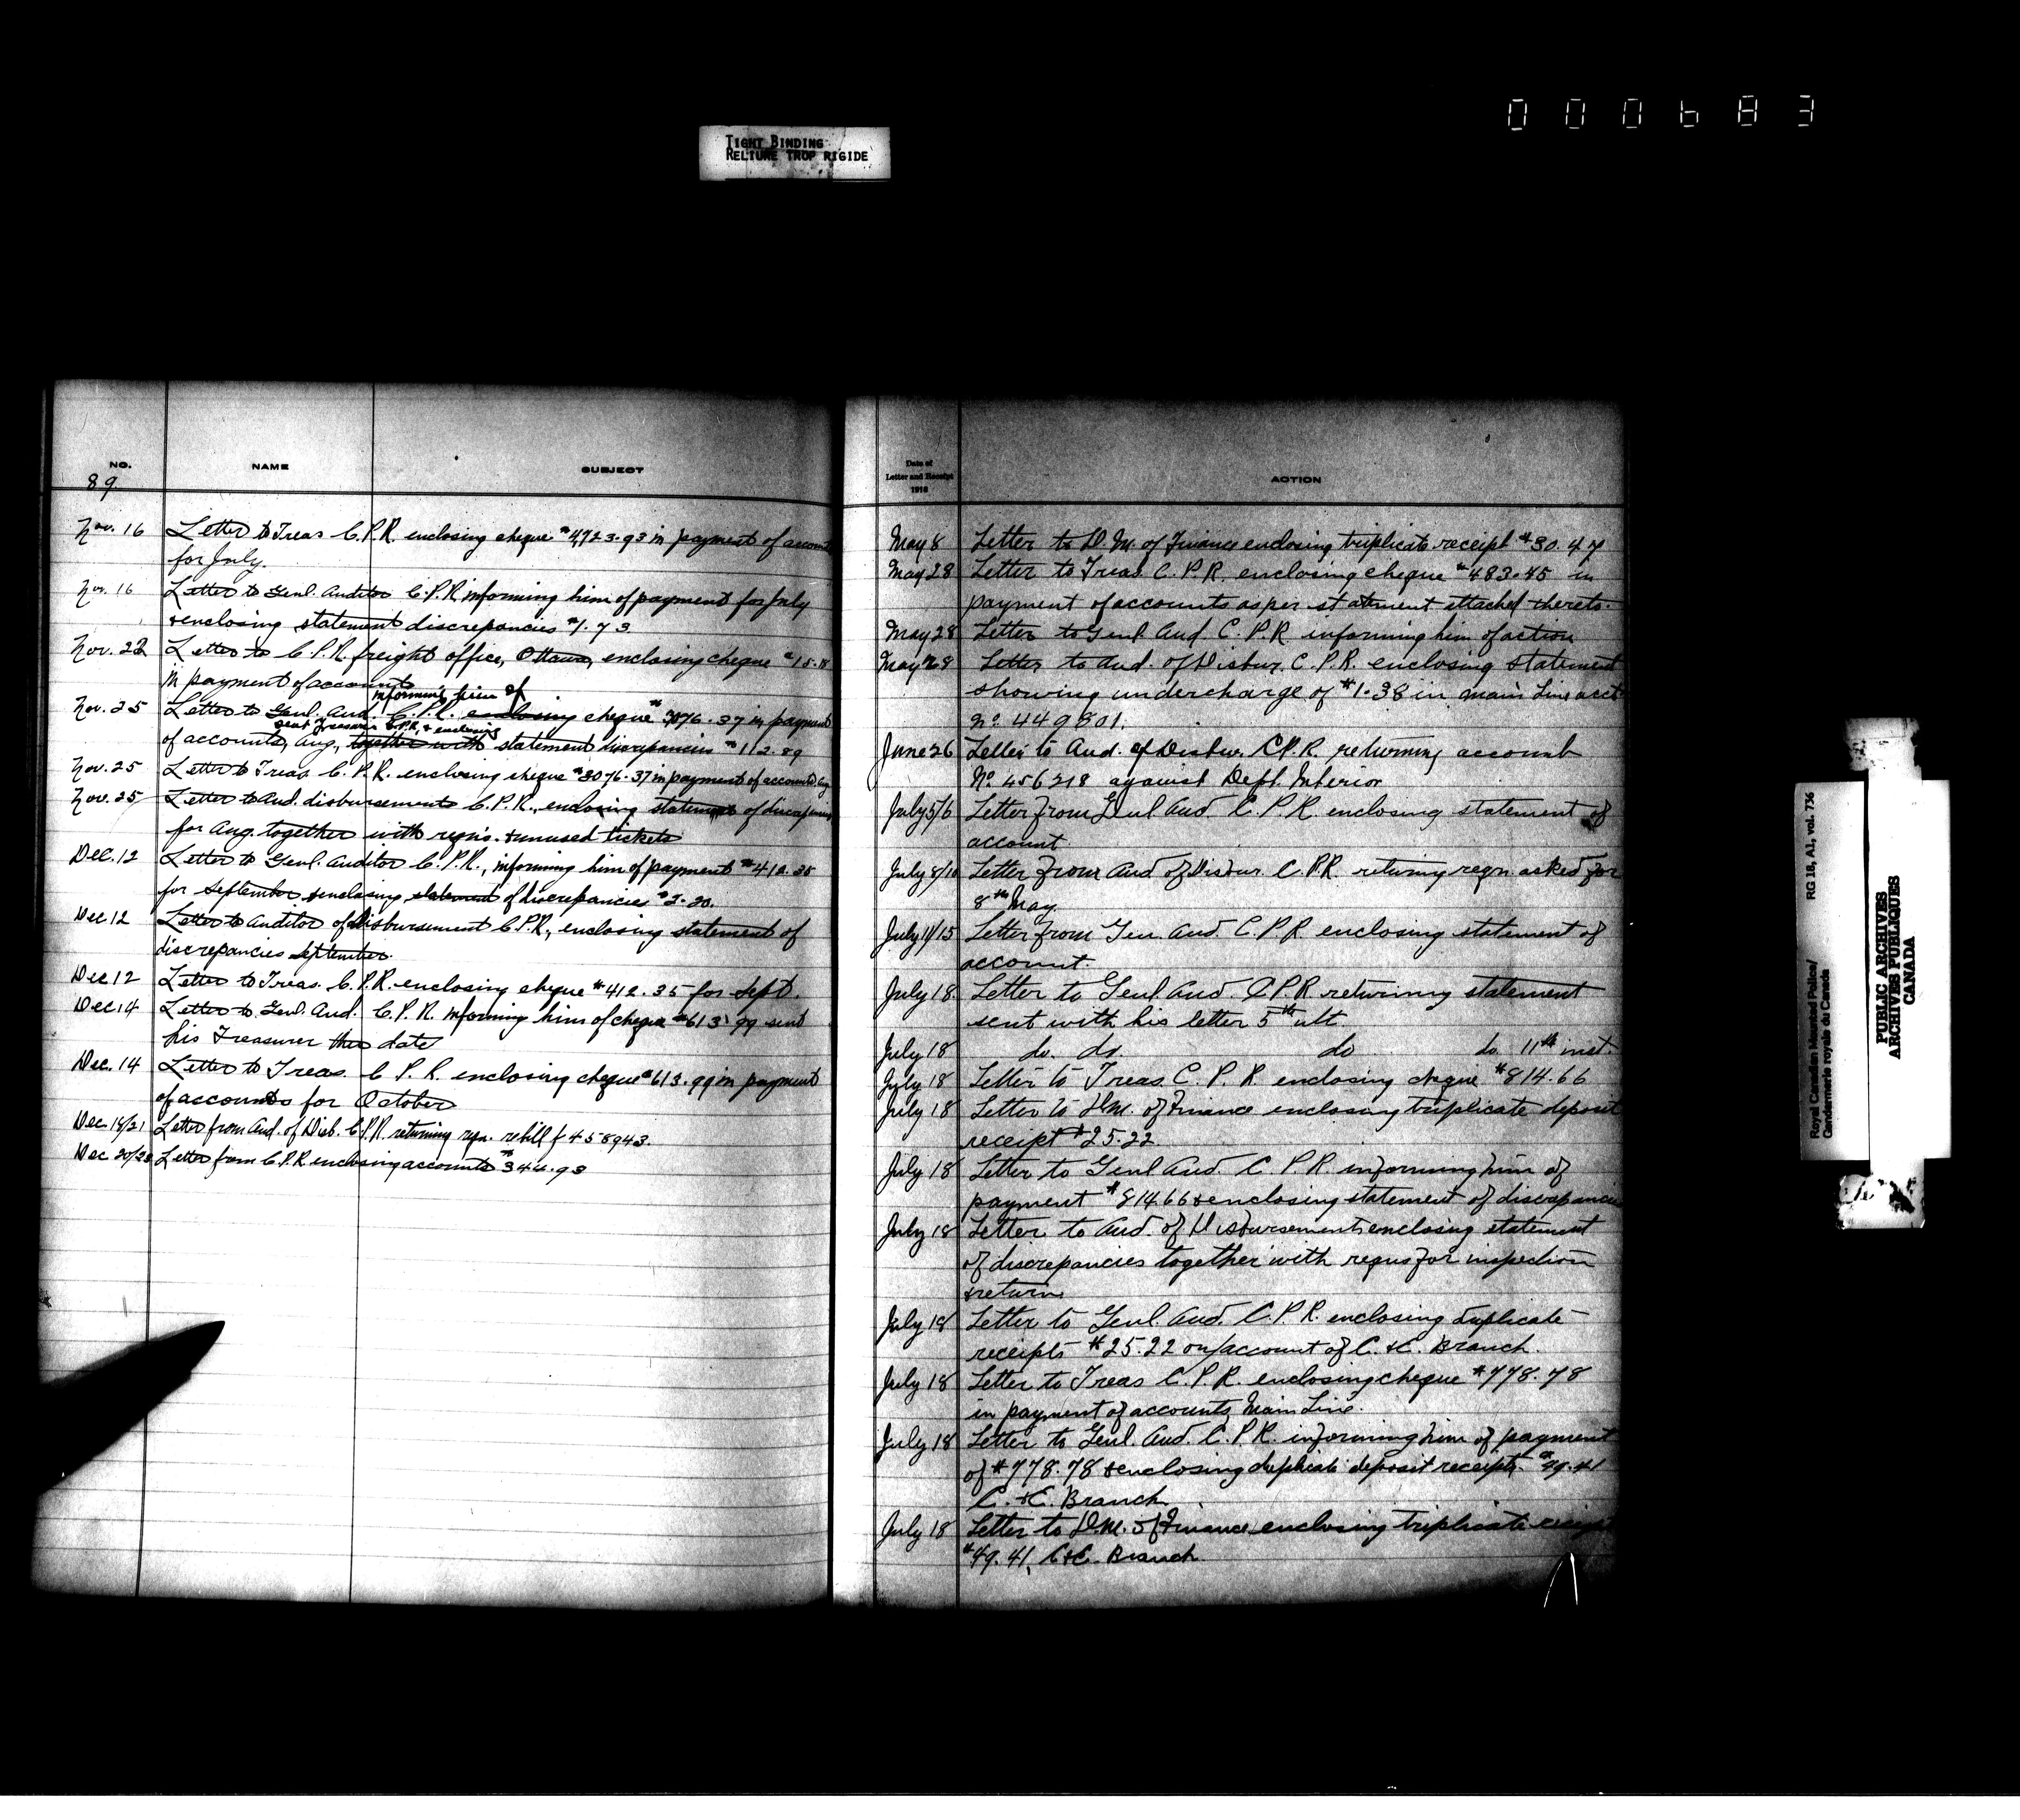 000683
TIGHT BINDING
RELIURE TROP RIGIDE
NO.
NAME
SUBJECT
89.
Nov. 16 Letter to Treas C.P.R enclosing cheque $4723.93 in payment of accounts
for July.
Nov. 16 Letter to Genl. Auditor C.P.R. informing him of payment for July
& enclosing statement discrepancies $1.73
Nov. 22 Letter to C.P.R. freight office, Ottawa, enclosing cheque
in payment of account
informing him of
Nov. 25 Letter to Genl. Aud. C.P.R. enclosing cheque $3076.37 in payment
sent Treasurer C.P.R. & enclosing
of accounts, Aug., together with statement discrepancies $112.89
Nov. 25 Letter to Treas. C.P.R. enclosing cheque $3076.37 in payment of accounts Aug
Nov. 25 Letter to Aud. disbursements C.P.R., enclosing statement of
for Aug. together with reqn's. & unused tickets
Dec. 12 Letter to Genl. Auditor C.P.R., informing him of payment $412.35
for September & enclosing statement of discrepancies $2.20.
Dec 12 Letter to Auditor of Disbursement C.P.R., enclosing statement of
discrepancies September.
Dec 12 Letter to Treas. C.P.R. enclosing cheque $412.35 for Sept.
Dec 14 Letter to Genl. Aud. C.P.R. informing him of cheque $613.99 sent
his Treasurer this date
Dec. 14 Letter to Treas. C.P.R. enclosing cheque $613.99 in payment
of accounts for October
Dec 18/21 Letter from Aud. of Disb. C.P.R. returning reqn. rebill f 458943.
Dec 20/23 Letter from C.P.R. enclosing accounts $344.93
Date of
Letter and Receipt
1918
ACTION
May 8 Letter to D.M. of Finance enclosing triplicate receipt $30.47
May 28 Letter to Treas. C.P.R. enclosing cheque $483.45 in
payment of accounts as per statement attached thereto.
May 28 Letter to Genl. Aud. C.P.R informing him of action
May 28 Letter to Aud. of Disbur. C.P.R. enclosing statement
showing undercharge of $1.38 in main Line acct
No. 449801.
June 26 Letter to Aud. of Disbur. C.P.R. returning account
No. 456218 against Dept. Interior
July 5/6 Letter from Genl Aud. C.P.R. enclosing statement of
account
July 8/10 Letter from Aud of Disbur. C.P.R. returning reqn. asked for
8th May.
July 11/15 Letter from Gen. Aud. C.P.R. enclosing statement of
account.
July 18. Letter to Genl Aud. C.P.R returning statement
sent with his letter 5th ult
July 18 do. do. do do. 11th inst.
July 18 Letter to Treas. C.P.R. enclosing cheque $814.66
July 18 Letter to D.M. of Finance enclosing triplicate deposit
receipt $25.22
July 18 Letter to Genl Aud. C.P.R. informing him of
payment $814.66 & enclosing statement of discrepancies
July 18 Letter to Aud. of Disbursements enclosing statement
of discrepancies together with reqns for inspection
& return
July 18 Letter to Genl Aud. C.P.R. enclosing duplicate
receipts $25.22 on/account of C. & E. Branch.
July 18 Letter to Treas C.P.R. enclosing cheque $778.78
in payment of accounts, Main Line.
July 18 Letter to Genl. Aud. C.P.R. informing him of payment
of $778.78 & enclosing duplicate deposit receipts $49.41
C. & E. Branch.
July 18 Letter to D.M. of Finance enclosing triplicate receipt
$49.41, C&E. Branch.
Royal Canadian Mounted Police/
Gendarmerie royale du Canada
RG 18, A1, vol. 736
PUBLIC ARCHIVES
ARCHIVES PUBLIQUES
CANADA